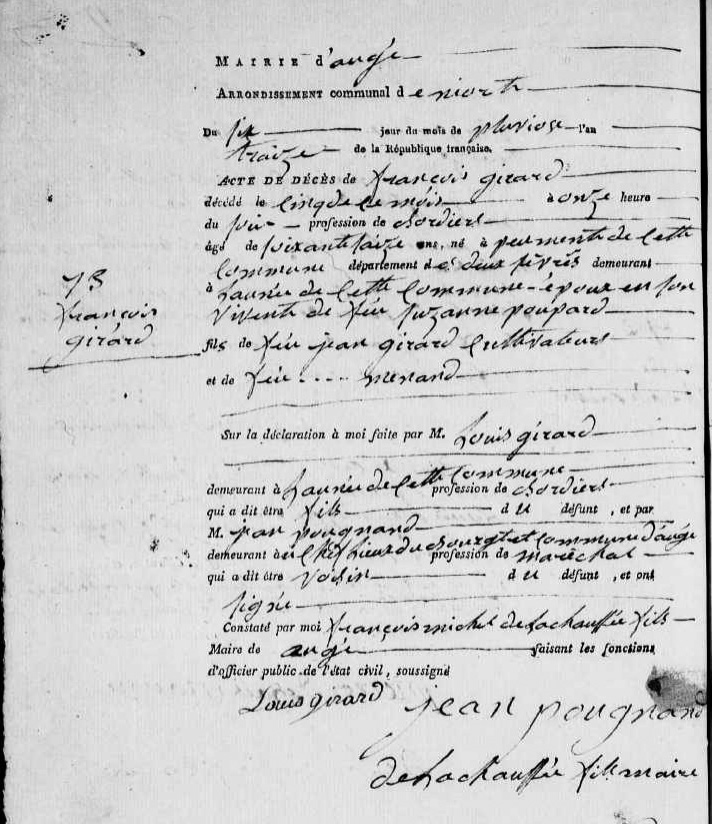 MAIRIE d'augé
ARRONDISSEMENT communal de niort
Du six jour du mois de pluviose l'an
traize de la République française.
ACTE DE DÉCÈS de françois girard
décédé le cinq de ce mois à onze heure
du soir profession de bordiers
âgé de soixante saize ans, né à de cette
commune département des deux sèvres demeurant
à de cette commune époux en son
vivente de feu suzanne poupard
fils de feu jean girard cultivateurs
et de feu .... menand
73
françois
girard
Sur la déclaration à moi faite par M. Louis girard
demeurant à de cette commune profession de bordiers
qui a dit être fils du défunt, et par
M. jean pougnand
demeurant au chef lieux du bourg et commune d'augé profession de maréchal
qui a dit être voisin du défunt, et ont
signé
Constaté par moi françois michel delachauffée fils
Maire de augé faisant les fonctions
d'officier public de l'état civil, soussigné
Louis girard jean pougnand
delachauffée fils maire